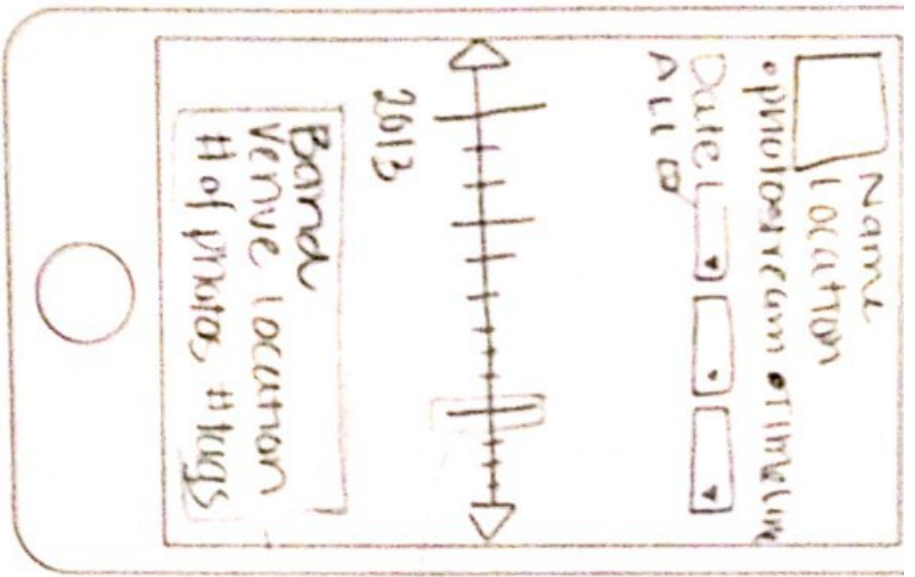 Name
Location
•photostream •Timeline
Date
ALL
2013
Band
Venue location
# of photos, # tags